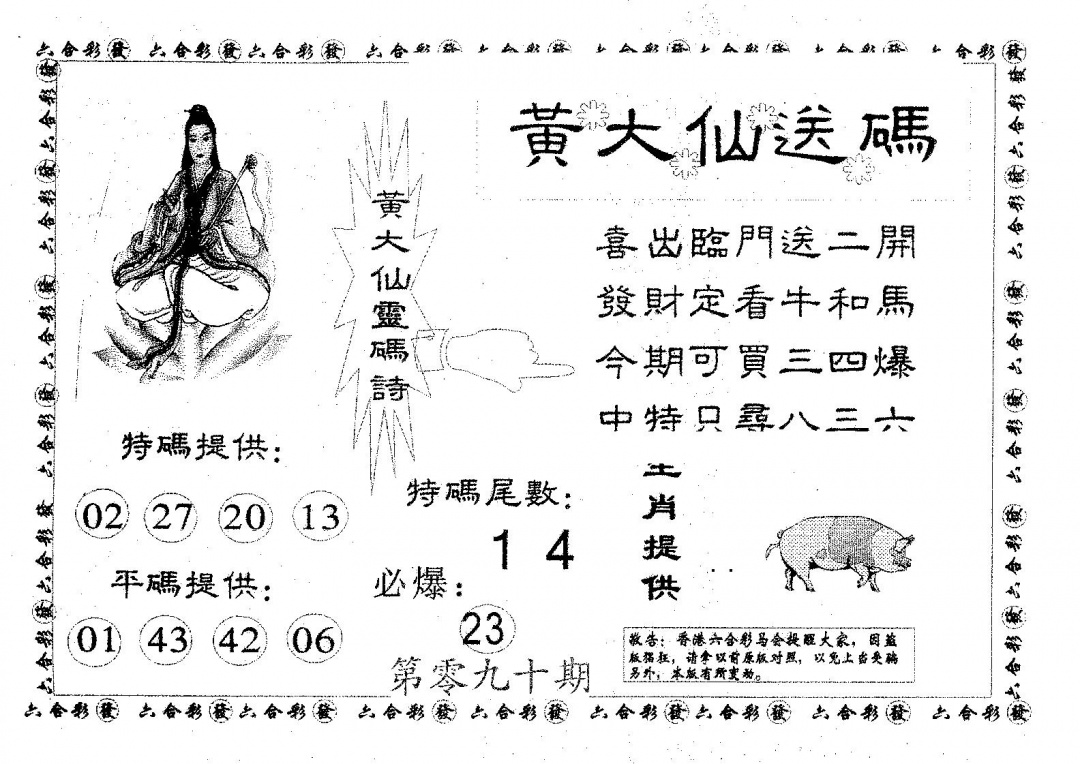 六合彩發 六合彩發六合彩發 六合彩發六合彩發 六合彩發六合彩發 六合彩發 六合彩發
黃大仙送碼
黃大仙靈碼詩
喜出臨門送二開
發財定看牛和馬
今期可買三四爆
中特只尋八三六
特碼提供：
02 27 20 13
平碼提供：
01 43 42 06
特碼尾數：
1 4
必爆：
23
第零九十期
生肖提供
敬告：香港六合彩马会提醒大家，因盗
版猖狂，请拿以前原版对照，以免上当受骗
另外，本版有所变动。
六合彩發 六合彩發六合彩發 六合彩發六合彩發 六合彩發六合彩發 六合彩發 六合彩發